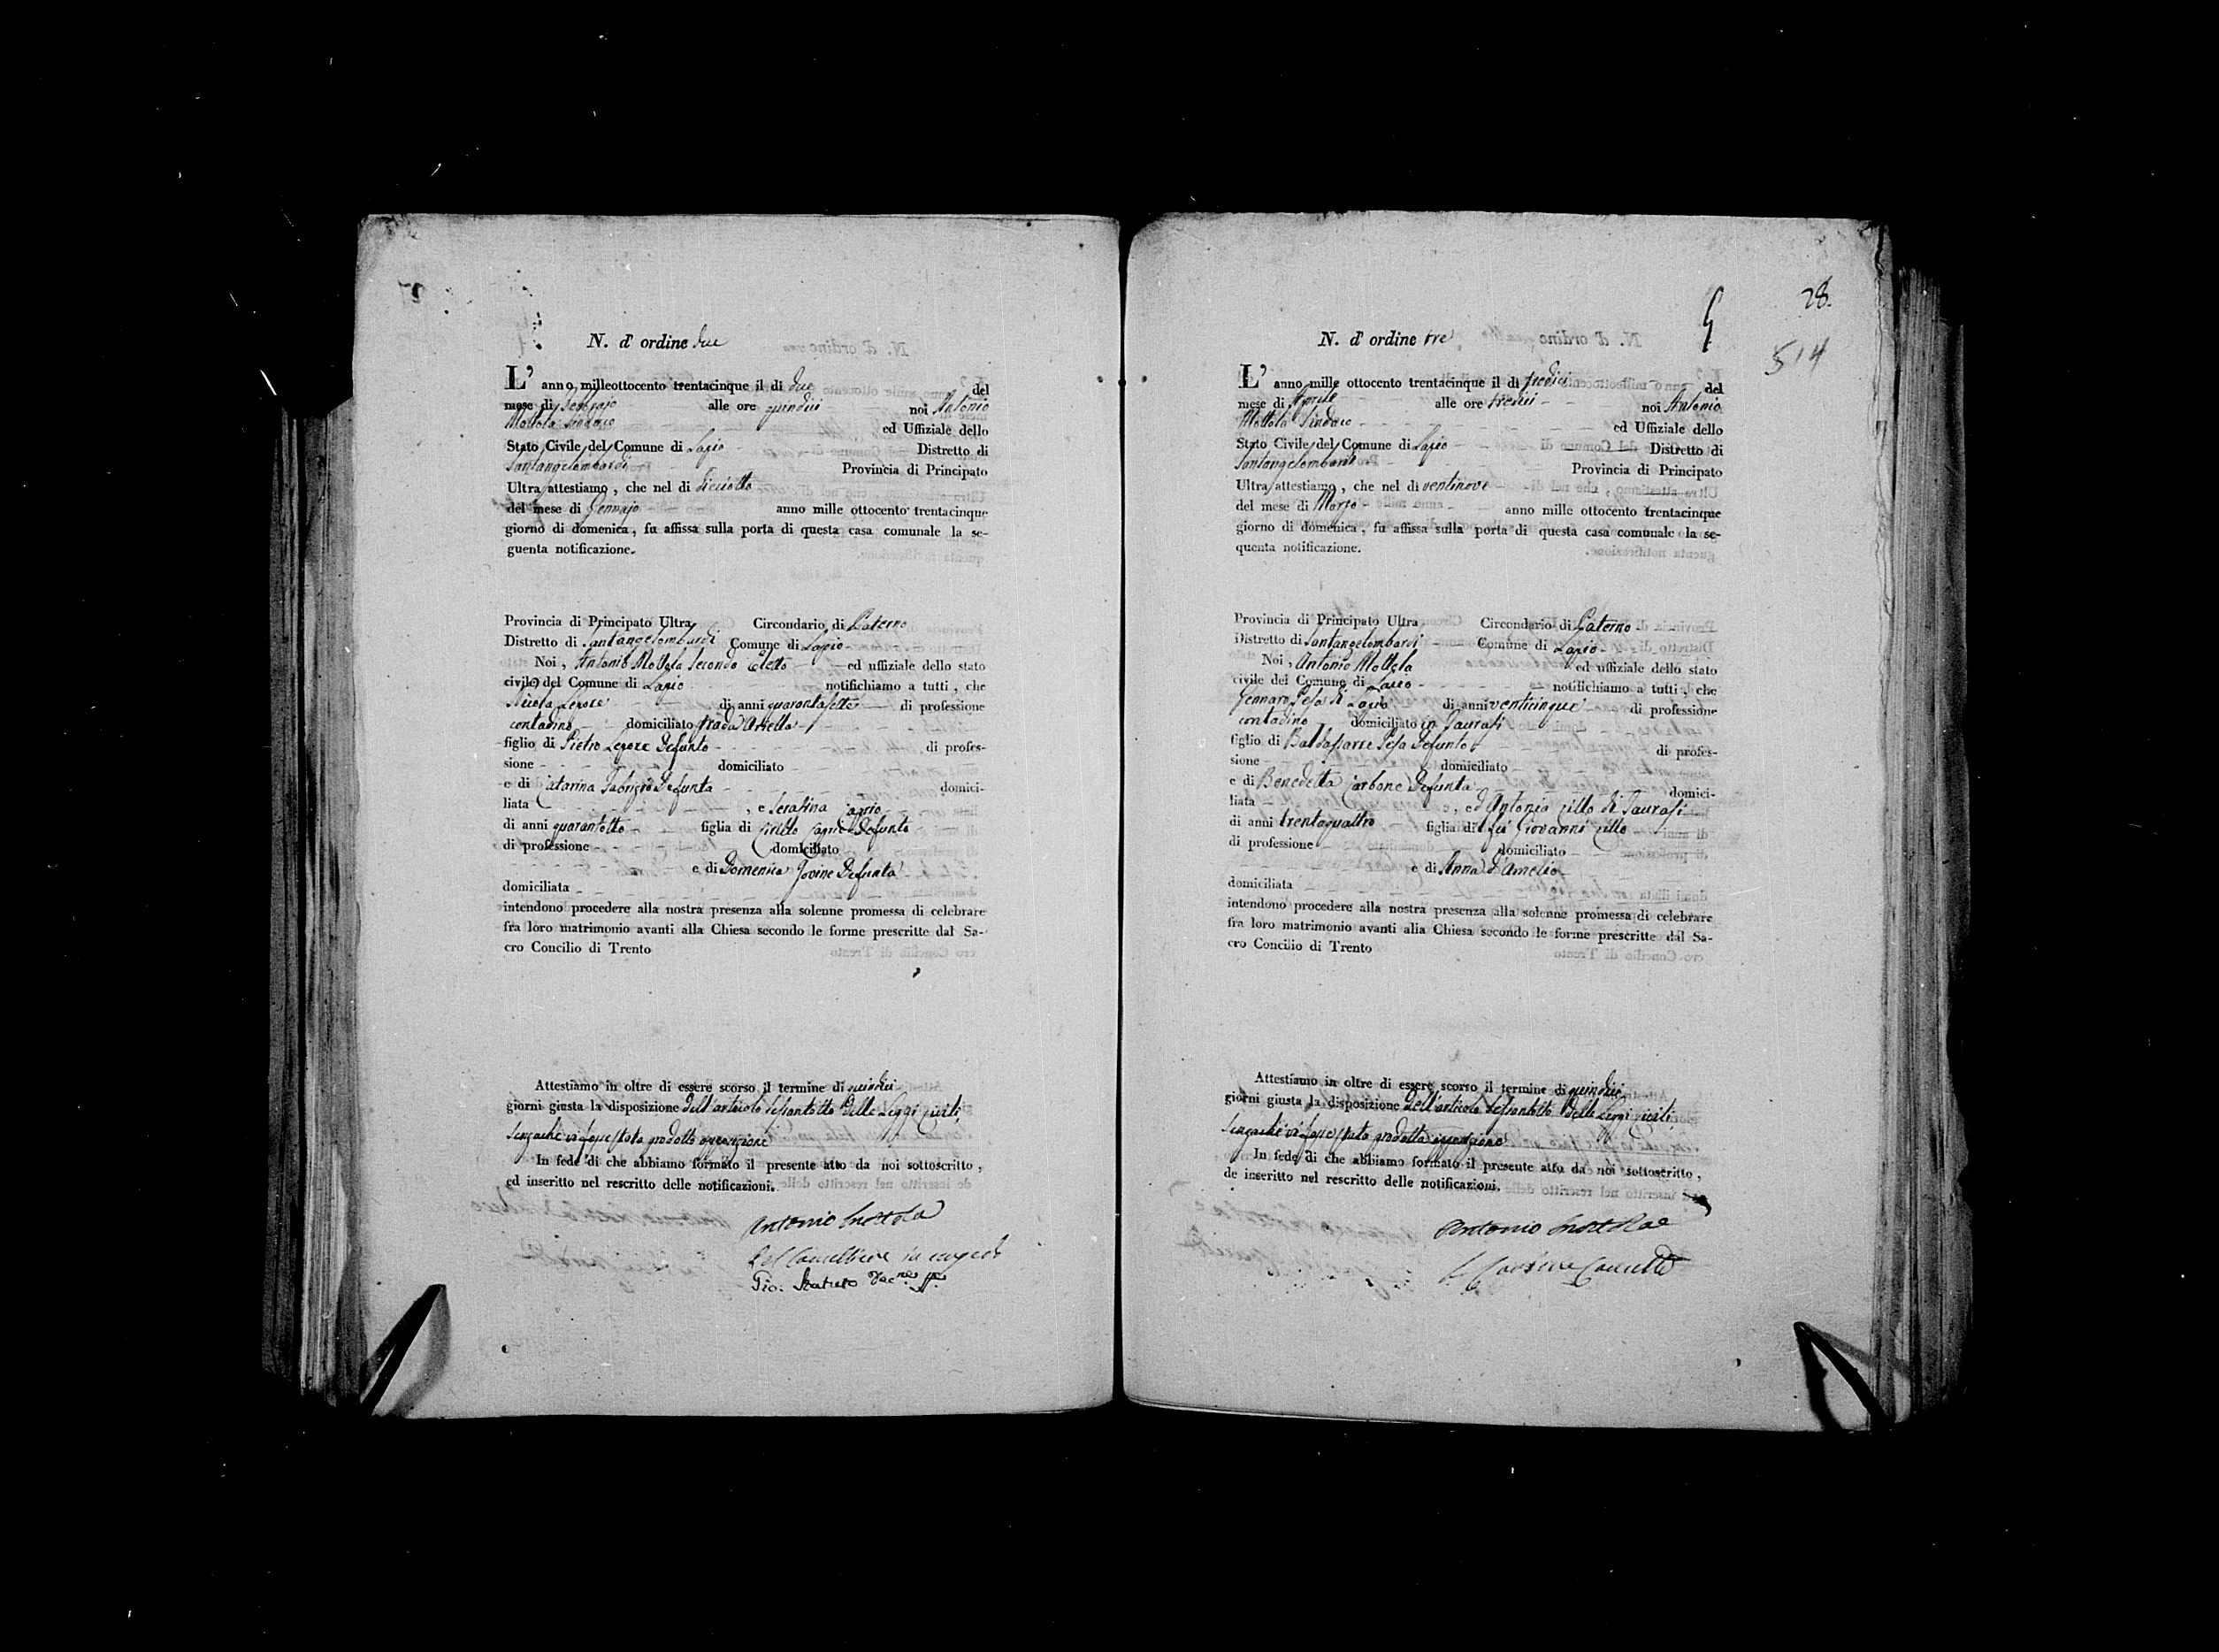 N. d' ordine due
L' anno milleottocento trentacinque il dì due del
mese di Febbrajo alle ore quindici noi Antonio
Mottola Sindaco ed Uffiziale dello
Stato Civile del Comune di Lapio Distretto di
Santangelombardi Provincia di Principato
Ultra attestiamo, che nel dì dieciotto
del mese di Gennajo anno mille ottocento trentacinque
giorno di domenica, fu affissa sulla porta di questa casa comunale la se-
guenta notificazione.
Provincia di Principato Ultra Circondario di Paterno
Distretto di Santangelombardi Comune di Lapio
Noi, Antonio Mottola Secondo Eletto ed uffiziale dello stato
civile del Comune di Lapio notifichiamo a tutti, che
Nicola Lepore di anni quarantasette di professione
contadino domiciliato strada
figlio di Pietro Lepore Defunto di profes-
sione domiciliato
e di Catarina Fabrizio Defunta domici-
liata , e Serafina Caprio
di anni quarantotto figlia di Caprio Defunto
di professione domiciliato
e di Domenica Jovine Defunta
domiciliata
intendono procedere alla nostra presenza alla solenne promessa di celebrare
fra loro matrimonio avanti alla Chiesa secondo le forme prescritte dal Sa-
cro Concilio di Trento
Attestiamo in oltre di essere scorso il termine di quindici
giorni giusta la disposizione dell'articolo sessantotto delle Leggi civili,
senzache vi fosse stata prodotta opposizione
In fede di che abbiamo formato il presente atto da noi sottoscritto,
ed inseritto nel rescritto delle notificazioni.
Antonio Mottola
Pel Cancelliere in congedo
28.
514
N. d' ordine tre
L' anno mille ottocento trentacinque il dì tredici del
mese di Aprile alle ore tredici noi Antonio
Mottola Sindaco ed Uffiziale dello
Stato Civile del Comune di Lapio Distretto di
Santangelombardi Provincia di Principato
Ultra attestiamo, che nel dì ventinove
del mese di Marzo anno mille ottocento trentacinque
giorno di domenica, fu affissa sulla porta di questa casa comunale la se-
quenta notificazione.
Provincia di Principato Ultra Circondario di Paterno
Distretto di Santangelombardi Comune di Lapio
Noi, Antonio Mottola ed uffiziale dello stato
civile del Comune di Lapio notifichiamo a tutti, che
Gennaro Pesa di Lapio di anni venticinque di professione
contadino domiciliato in Taurasi
figlio di Baldassarre Pesa Defunto di profes-
sione domiciliato
e di Benedetta Carbone Defunta domici-
liata , ed Antonia Cillo di Taurasi
di anni trentaquattro figlia di Giovanni Cillo
di professione domiciliato
e di Anna d'Amelio
domiciliata
intendono procedere alla nostra presenza alla solenne promessa di celebrare
fra loro matrimonio avanti alla Chiesa secondo le forme prescritte dal Sa-
cro Concilio di Trento
Attestiamo in oltre di essere scorso il termine di quindici
giorni giusta la disposizione dell'articolo sessantotto delle Leggi civili,
senzache vi fosse stata prodotta opposizione
In fede di che abbiamo formato il presente atto da noi sottoscritto,
de inseritto nel rescritto delle notificazioni.
Antonio Mottola